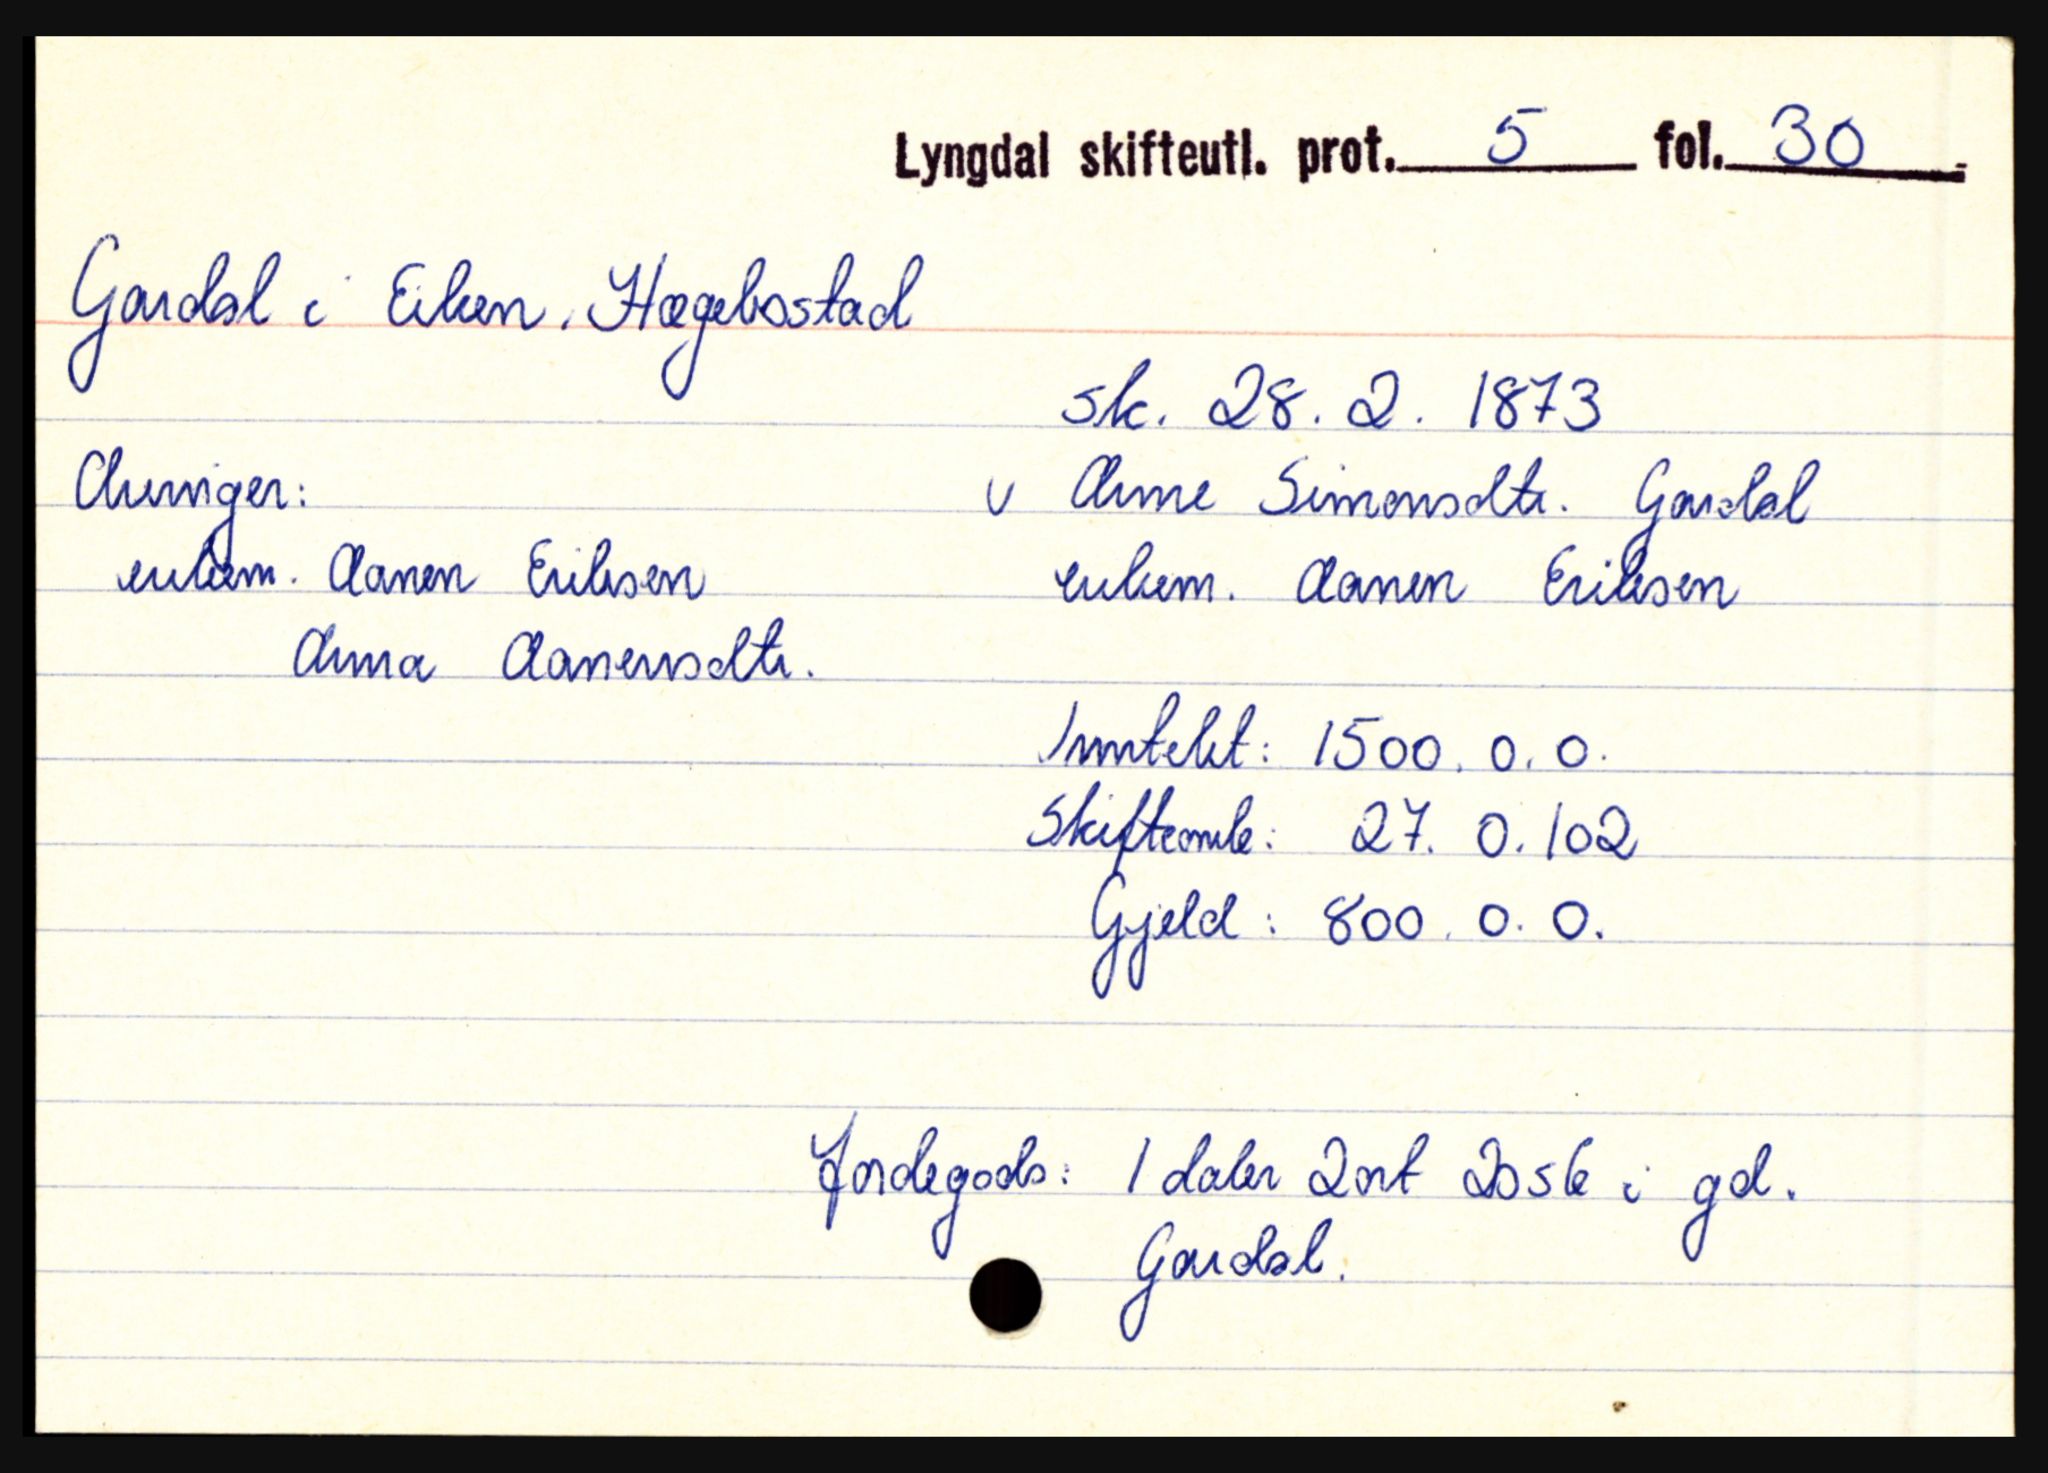 Lyngdal skifteutl. prot. 5 fol. 30
Gardsl i Eiken. Hægebostad
sk. 28. 2. 1873
Arvinger:
v Anne Simonsdtr. Gardsl
enkem. Aanen Eriksen
enkem. Aanen Eriksen
Anna Aanensdtr.
Inntekt: 1500. 0. 0.
Skifteomk: 27. 0. 102
Gjeld: 800. 0. 0.
Jordegods: 1 daler 2 ort 20 sk i gd.
Gardsl.